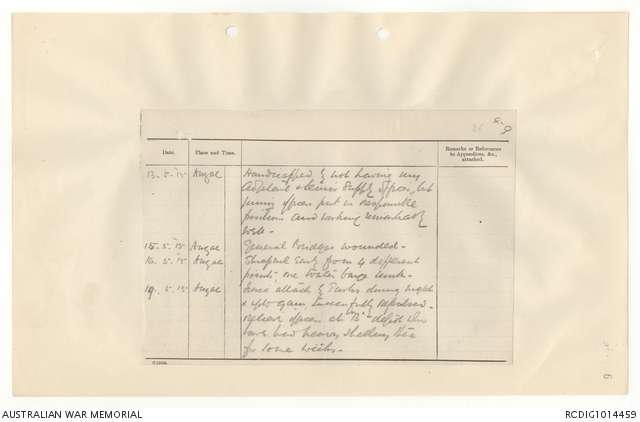 26
Date. Place and Time. Remarks or References to Appendices, &c., attached.
13. 5. 15 Anzac Handicapped by not having my
Adjutant & Senior Supply officer, but
junior officers put in responsible
positions and working remarkably
well.
15. 5. 15 Anzac General Bridges wounded.
16. 5. 15 Anzac Shrapnel early from 4 different
points one water barge sunk.
19. 5. 15 Anzac attack by Turks during night
successfully repulsed.
officer at "B" depot who
have had heavy shelling
for some weeks.
6
AUSTRALIAN WAR MEMORIAL
RCDIG1014459